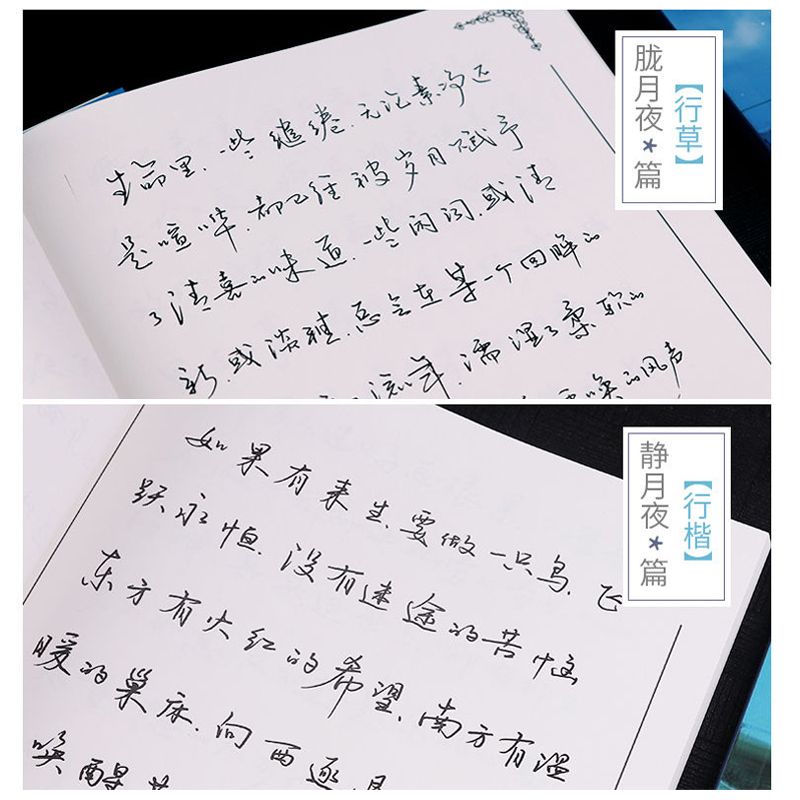 胧月夜*篇
【行草】
生命里，一些缱绻，无论素净还
是喧哗，都已经被岁月赋予
了清喜的味道，一些闲词，或清
新，或淡雅，总会在某一个回眸的
流年，濡湿了柔软的
唤的风声
静月夜*篇
【行楷】
如果有来生，要做一只鸟，飞
跃永恒，没有迷途的苦恼
东方有火红的希望，南方有温
暖的巢床，向西逐
唤醒